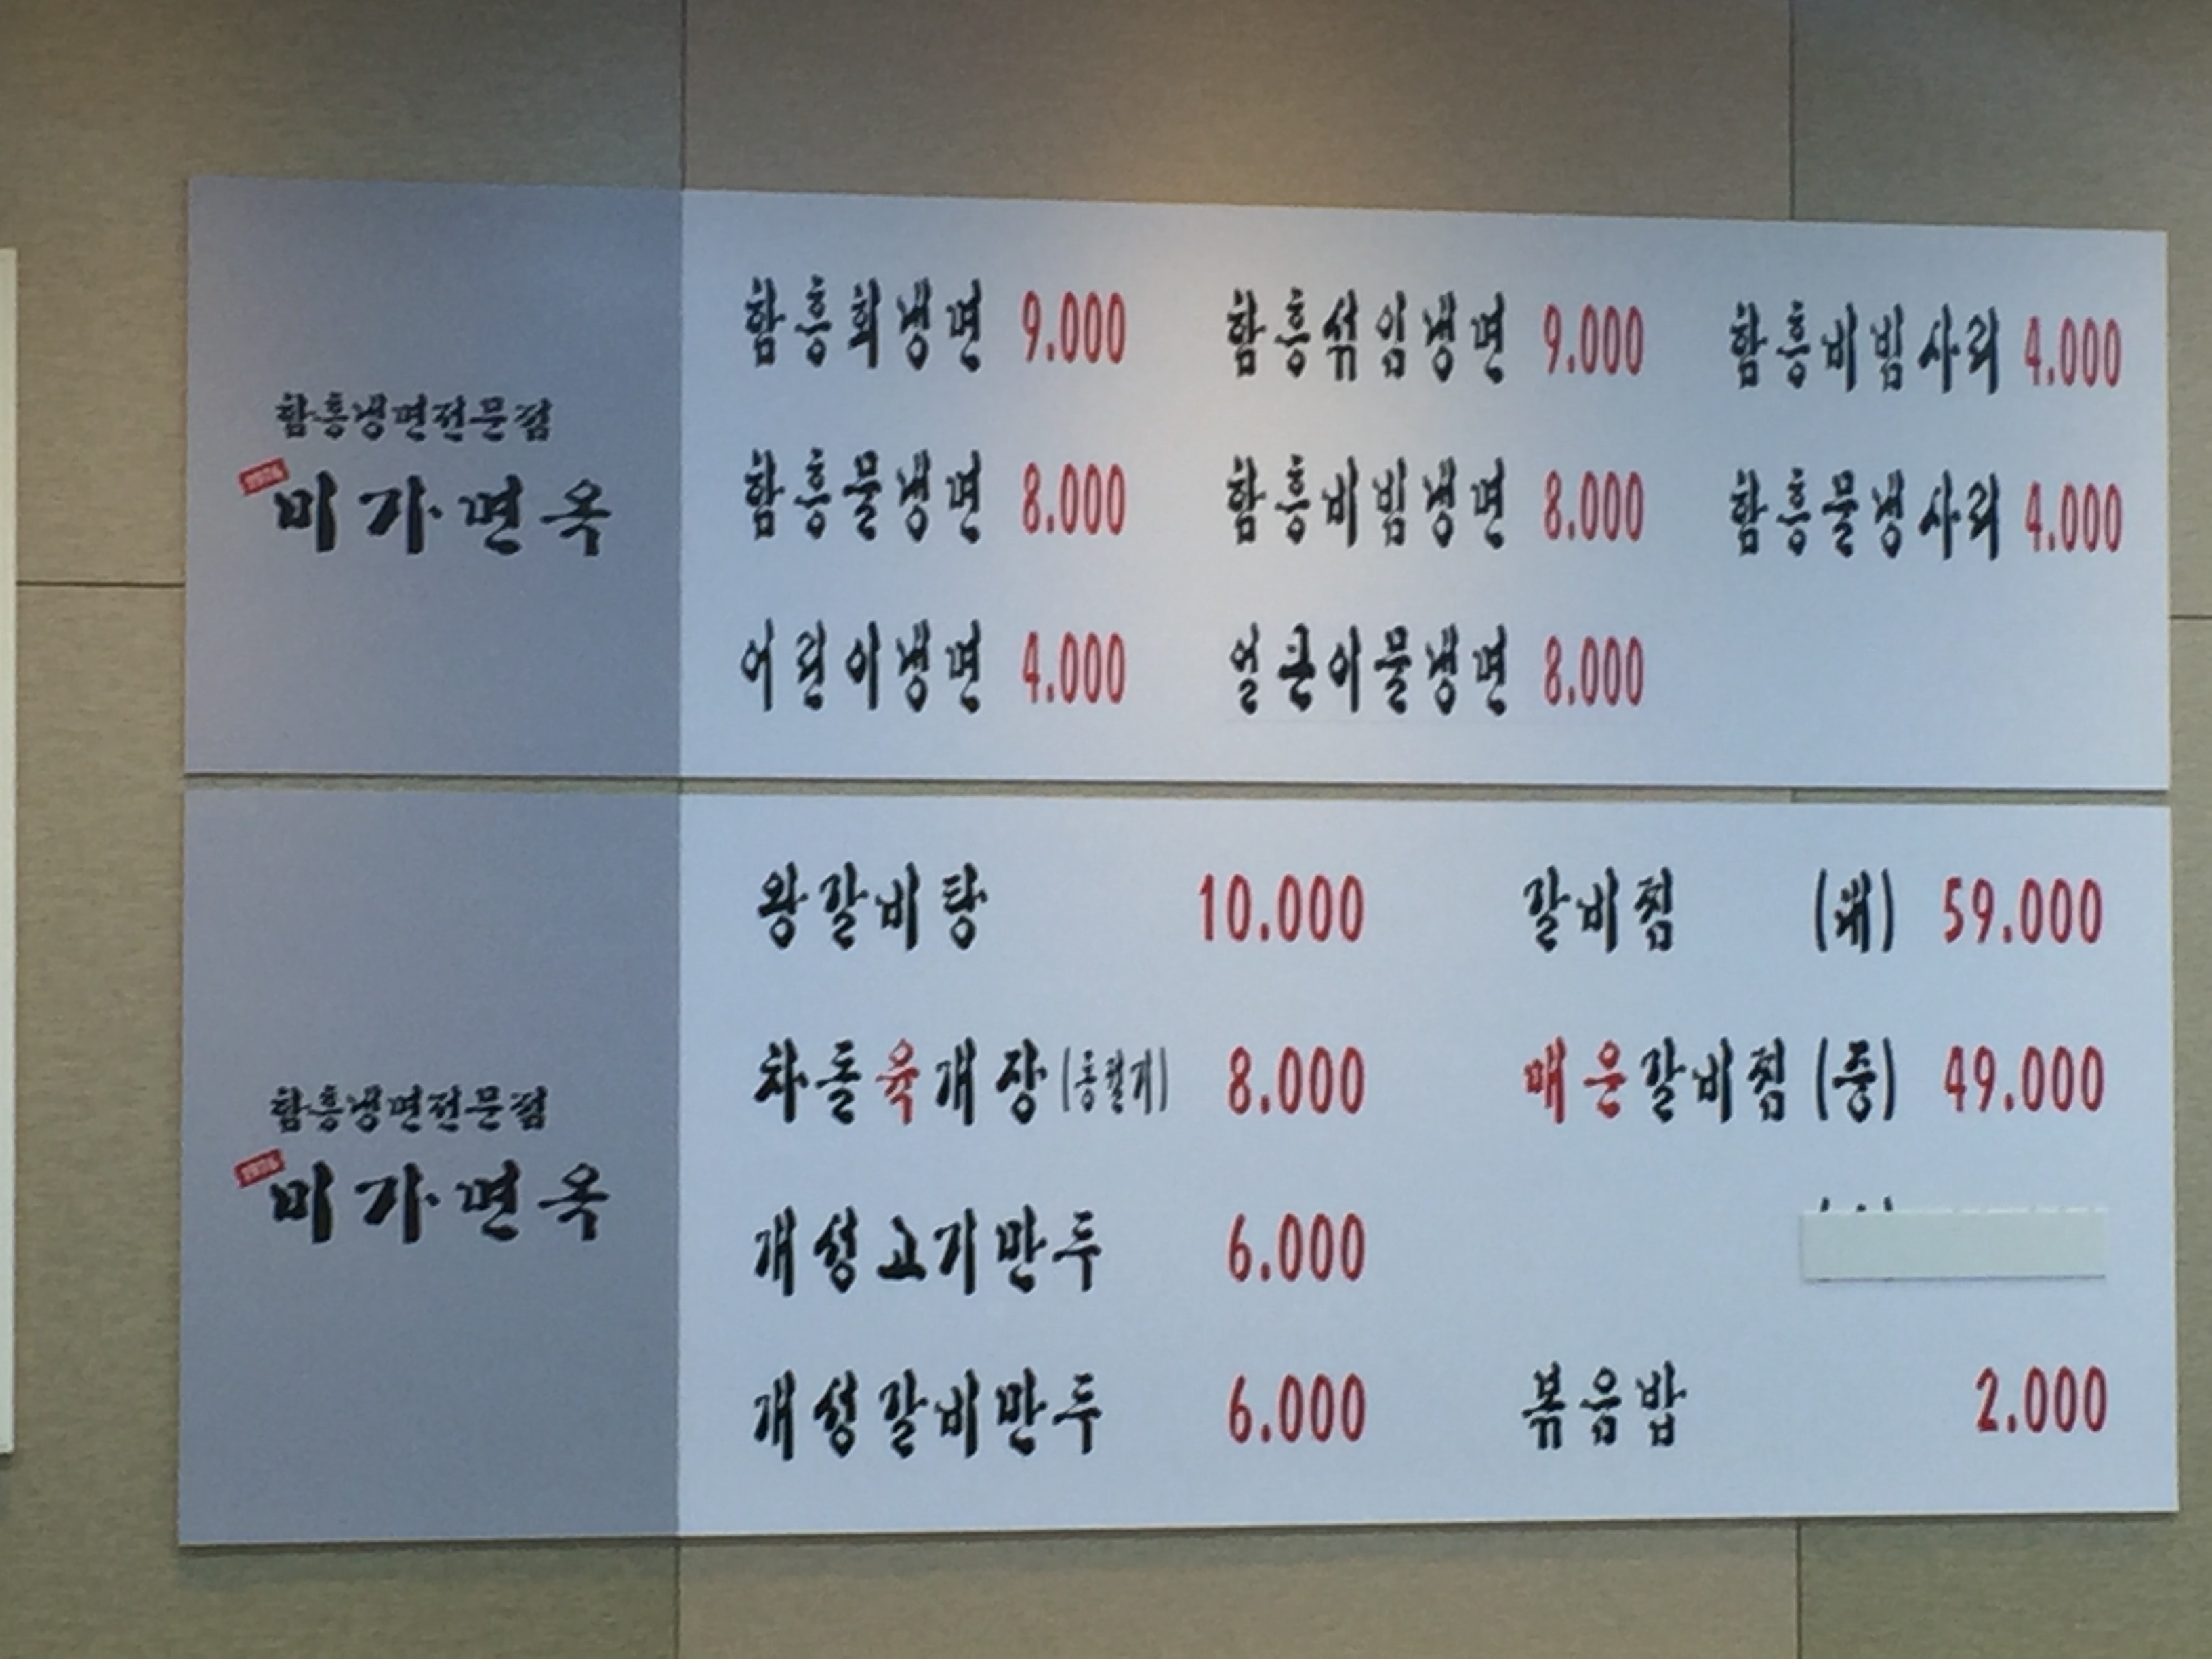 함흥냉면전문점
미가면옥
함흥회냉면 9.000 함흥섞임냉면 9.000 함흥비빔사리 4.000
함흥물냉면 8.000 함흥비빔냉면 8.000 함흥물냉사리 4.000
어린이냉면 4.000 얼큰이물냉면 8.000
함흥냉면전문점
미가면옥
왕갈비탕 10.000 갈비찜 (대) 59.000
차돌육개장(동절기) 8.000 매운갈비찜 (중) 49.000
개성고기만두 6.000
개성갈비만두 6.000 볶음밥 2.000